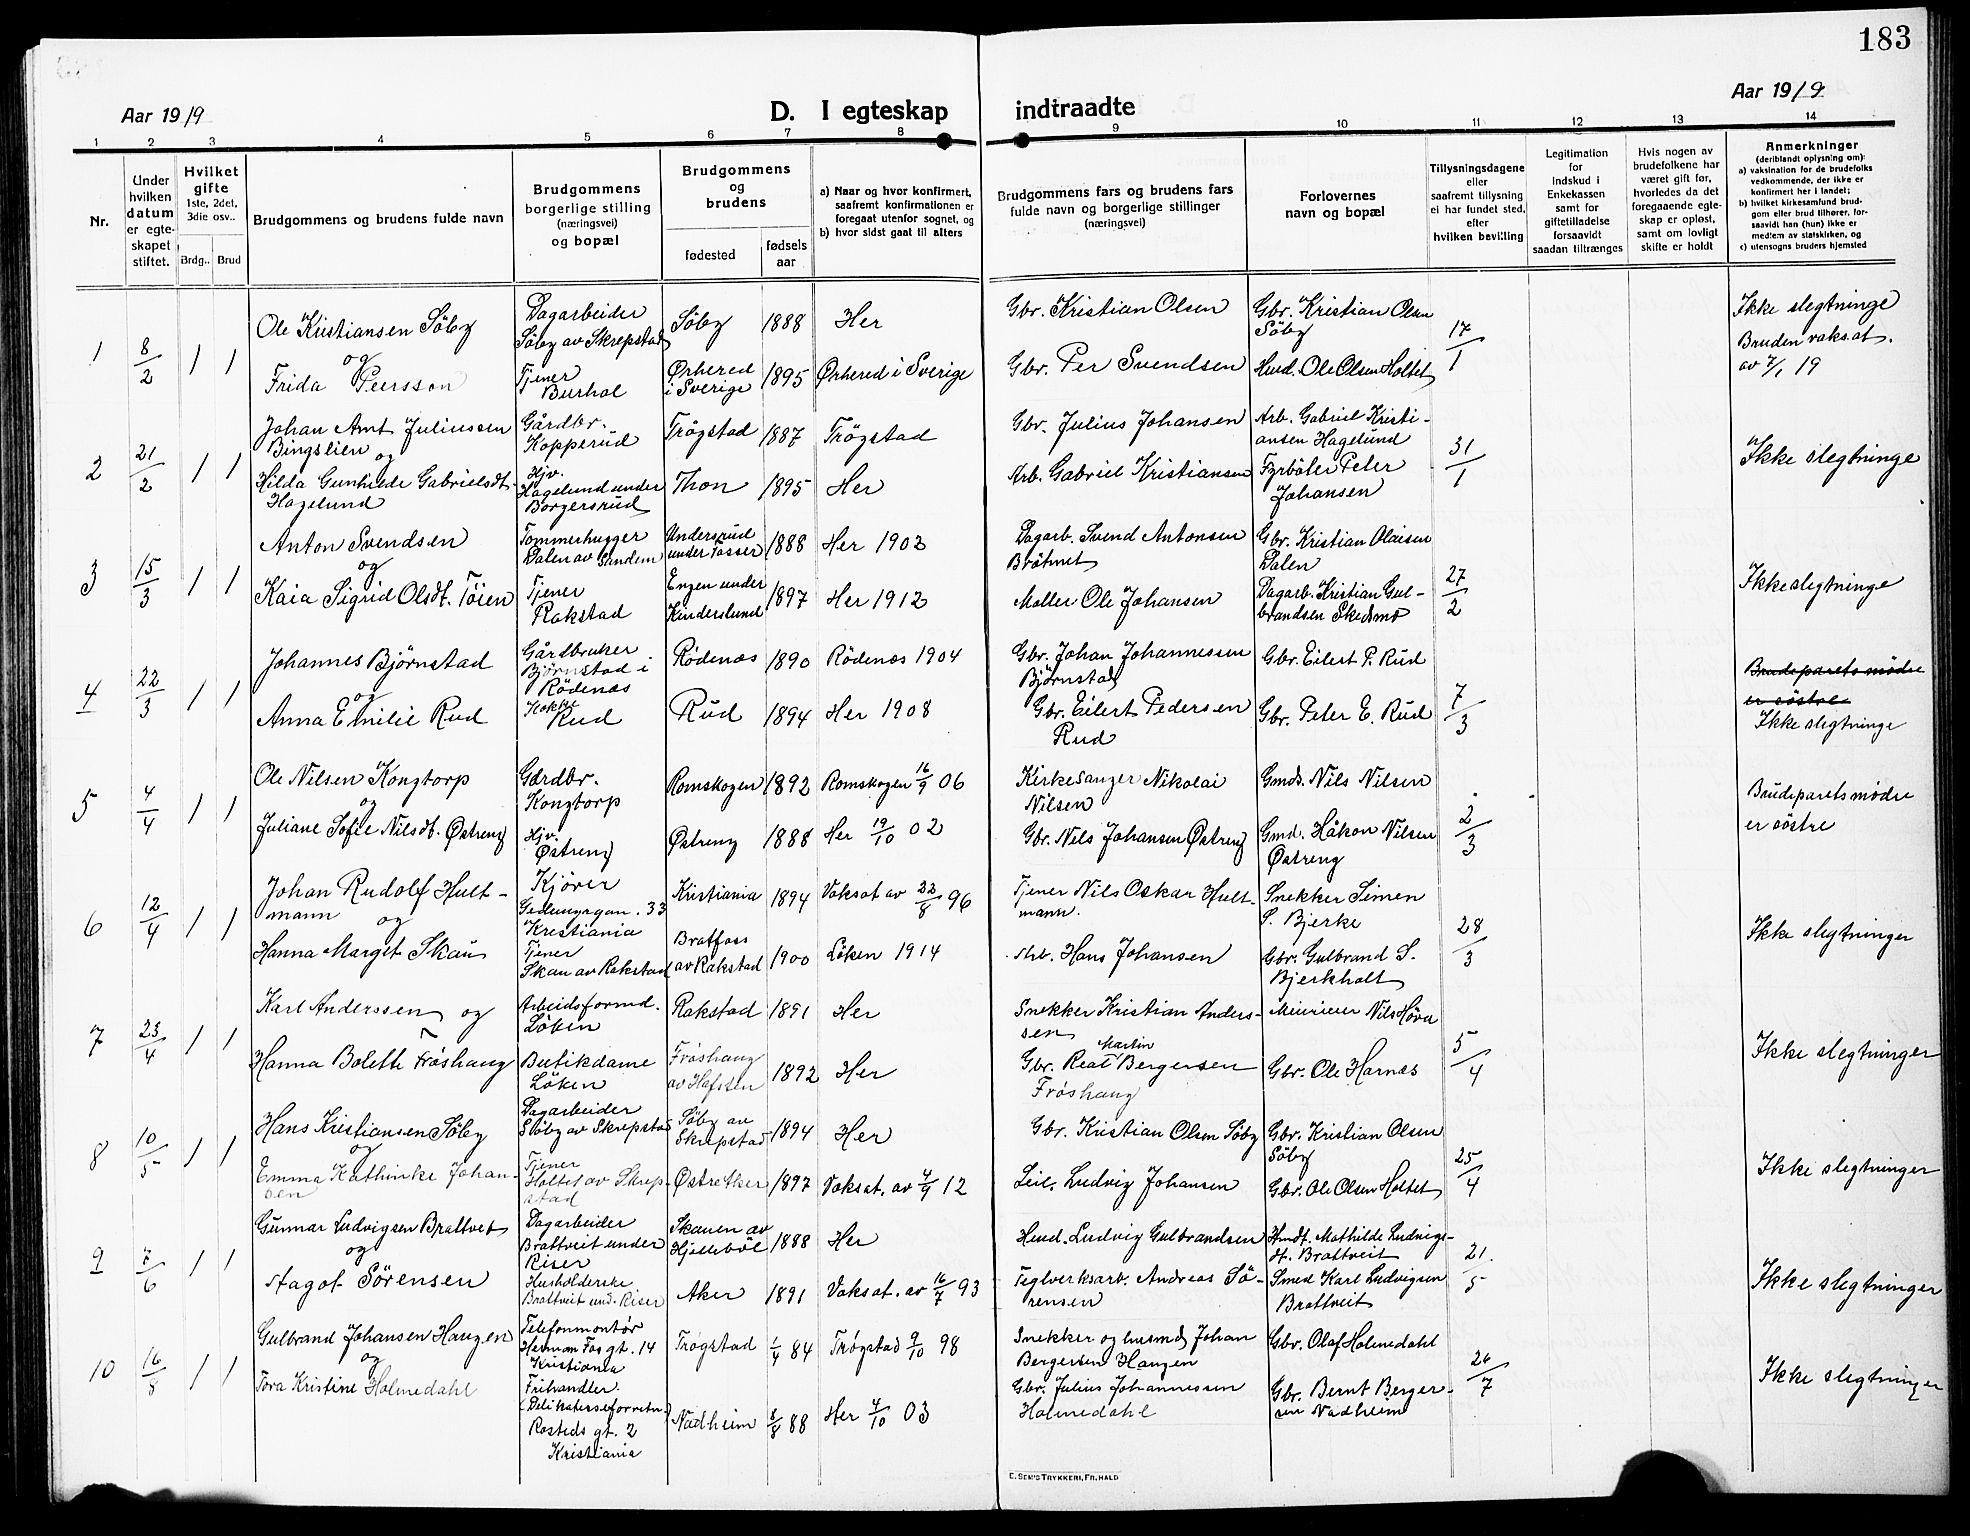 183
Aar 1919
D. I egteskap
indtraadte
Aar 1919
1 2 3 4 5 6 7 8 9 10 11 12 13 14
Nr.
Under hvilken datum er egteskapet stiftet.
Hvilket gifte 1ste, 2det, 3die osv..
Brdg.. Brud
Brudgommens og brudens fulde navn
Brudgommens borgerlige stilling (næringsvei) og bopæl
Brudgommens og brudens
fødested
fødsels aar
a) Naar og hvor konfirmert, saafremt konfirmationen er foregaat utenfor sognet, og
b) hvor sidst gaat til alters
Brudgommens fars og brudens fars fulde navn og borgerlige stillinger (næringsvei)
Forlovernes navn og bopæl
Tillysningsdagene eller saafremt tillysning ei har fundet sted, efter hvilken bevilling
Legitimation for indskud i Enkekassen samt for giftetilladelse forsaavidt saadan tiltrænges
Hvis nogen av brudefolkene har været gift før, hvorledes da det foregaaende egteskap er opløst, samt om lovligt skifte er holdt
Anmerkninger (deriblandt oplysning om):
a) vaksination for de brudefolks vedkommende, der ikke er konfirmert her i landet;
b) hvilket kirkesamfund brudgom eller brud tilhører, forsaavidt han (hun) ikke er medlem av statskirken, og
c) utensogns bruders hjemsted
1 8/2 1 1
Ole Kristiansen Söby
og
Frida Peersson
Dagarbeider
Söby av Skrepstad
Tjener
Burhol
Söby 1888 Her
Örhered
i Sverige 1895 Örhered i Sverige
Gbr. Kristian Olsen
Gbr. Per Svendsen
Gbr. Kristian Olsen
Söby
Husd. Ole Olsen Holtet
17/1
Ikke slegtninge
Bruden vaksat.
av 7/1 19
2 21/2 1 1
Johan Amt Juliussen
Bingslien og
Hilda Gunhilde Gabrielsdt.
Hagelund
Gårdbr.
Kopperud
Hjv.
Hagelund under
Borgersrud
Trögstad 1887 Trögstad
Thon 1895 Her
Gbr. Julius Johansen
Arb. Gabriel Kristiansen
Arb. Gabriel Kristi-
ansen Hagelund
Fyrböter Peter
Johansen
31/1
Ikke slegtninge
3 15/3 1 1
Anton Svendsen
og
Kaia Sigrid Olsdt. Töien
Tömmerhugger
Dalen av Sandem
Tjener
Rakstad
Undersrud
under Tosser 1888 Her 1902
Engen under
Kinderslund 1897 Her 1912
Dagarb. Svend Antonsen
Bråtnet
Möller Ole Johansen
Gbr. Kristian Olaisen
Dalen
Dagarb. Kristian Gul-
brandsen Skedsmo
27/2
Ikke slegtninge
4 22/3 1 1
Johannes Björnstad
og
Anna Emilie Rud
Gårdbruker
Björnstad i
Rödenæs
Kokke
Rud
Rödenæs 1890 Rödenæs 1904
Rud 1894 Her 1908
Gbr. Johan Johannessen
Björnstad
Gbr. Eilert Pedersen
Rud
Gbr. Eilert P. Rud
Gbr. Peter E. Rud
7/3
Brudeparets mödre
er söstre
Ikke slegtninge
5 4/4 1 1
Ole Nilsen Kongtorp
og
Juliane Sofie Nilsdt. Östreng
Gårdbr.
Kongtorp
Hjv.
Östreng
Romskogen 1892 Romskogen 16/9 06
Östreng 1888 Her 19/10 02
Kirkesanger Nikolai
Nilsen
Gbr. Nils Johansen Östreng
Gmd. Nils Nilsen
Gmd. Håkon Nilsen
Östreng
2/3
Brudeparets mödre
er söstre
6 12/4 1 1
Johan Rudolf Hult-
mann og
Hanna Margit Skau
Kjörer
33
Kristiania
Tjener
Skau av Rakstad
Kristiania 1894 Vaksat av 22/8 96
Bratfoss
av Rakstad 1900 Löken 1914
Tjener Nils Oskar Hult-
mann.
Arb. Hans Johansen
Snekker Simen
S. Bjerke
Gbr. Gulbrand S.
Bjerkholt
28/3
Ikke slegtninger
7 23/4 1 1
Karl Anderssen og
Hanna Bolette Fröshaug
Arbeidsformd.
Löken
Butikdame
Löken
Rakstad 1891 Her
Fröshaug
av Hafsten 1892 Her
Snekker Kristian Anders-
sen
Martin
Gbr. Reat Bergersen
Fröshaug
Murer Nils Höva
Gbr. Ole Harnæs
5/4
Ikke slegtninger
8 10/5 1 1
Hans Kristiansen Söby
og
Emma Kathinke Johan-
sen
Dagarbeider
Söby av Skrepstad
Tjener
Holtet av Skrep-
stad
Söby av
Skrepstad 1894 Her
Östre Aker 1897 Vaksat. av 4/9 12
Gbr. Kristian Olsen Söby
Leil. Ludvig Johansen
Gbr. Kristian Olsen
Söby
Gbr. Ole Olsen Holtet
25/4
Ikke slegtninger
9 7/6 1 1
Gunnar Ludvigsen Brattveit
og
Aagot Sörensen
Dagarbeider
Brattveit under
Riser
Husholderske
Brattveit und. Riser
Skauen av
Hjelleböl 1888 Her
Aker 1891 Vaksat. av 16/7 93
Husd. Ludvig Gulbrandsen
Teglverksarb. Andreas Sö-
rensen
Husdt. Mathilde Ludvigs-
dt. Brattveit
Smed Karl Ludvigsen
Brattveit
21/5
Ikke slegtninger
10 16/8 1 1
Gulbrand Johansen Haugen
og
Tora Kristine Holmedahl
Telefonmontör
Herman Fos gt. 14
Kristiania
Frihandler
(Delikatesseforretn.)
Rosteds gt. 2
Kristiania
Trögstad 1/4 84 Trögstad 9/10 98
Nadheim 8/8 88 Her 4/10 03
Snekker og husmd. Johan
Bergersen Haugen
Gbr. Julius Johannessen
Holmedahl
Gbr. Olaf Holmedahl
Gbr. Bernt Berger-
sen Nadheim
26/7
Ikke slegtninger
E. SEM'S TRYKKERI, FR.HALD